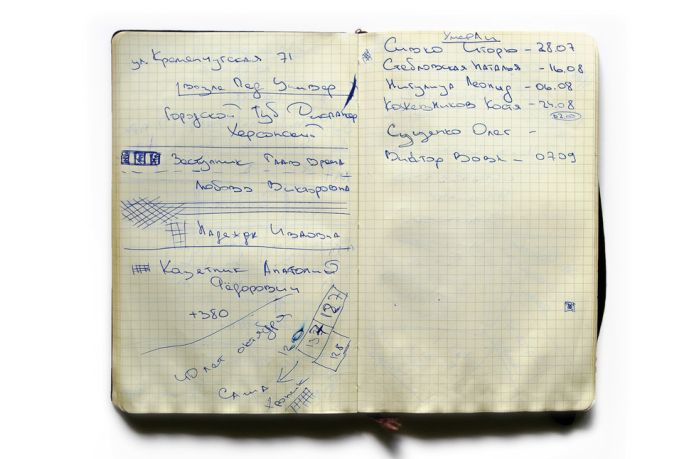 ул. Кременчугская 71
возле Пед Универ
Городской Туб Диспанцер
Херсонский
Заступник Глав Врача
Любовь Викторовна
Надежда Ивановна
Казетник Анатолий
Фёдорович
+380
40 лет октября
120
137
127
128
Саша
Умерли
Сизко Игорь – 28.07
Стебловская Наталья – 16.08
Леонид – 06.08
Кожевников Костя – 24.08
Сущенко Олег –
Виктор Вовк – 07.09